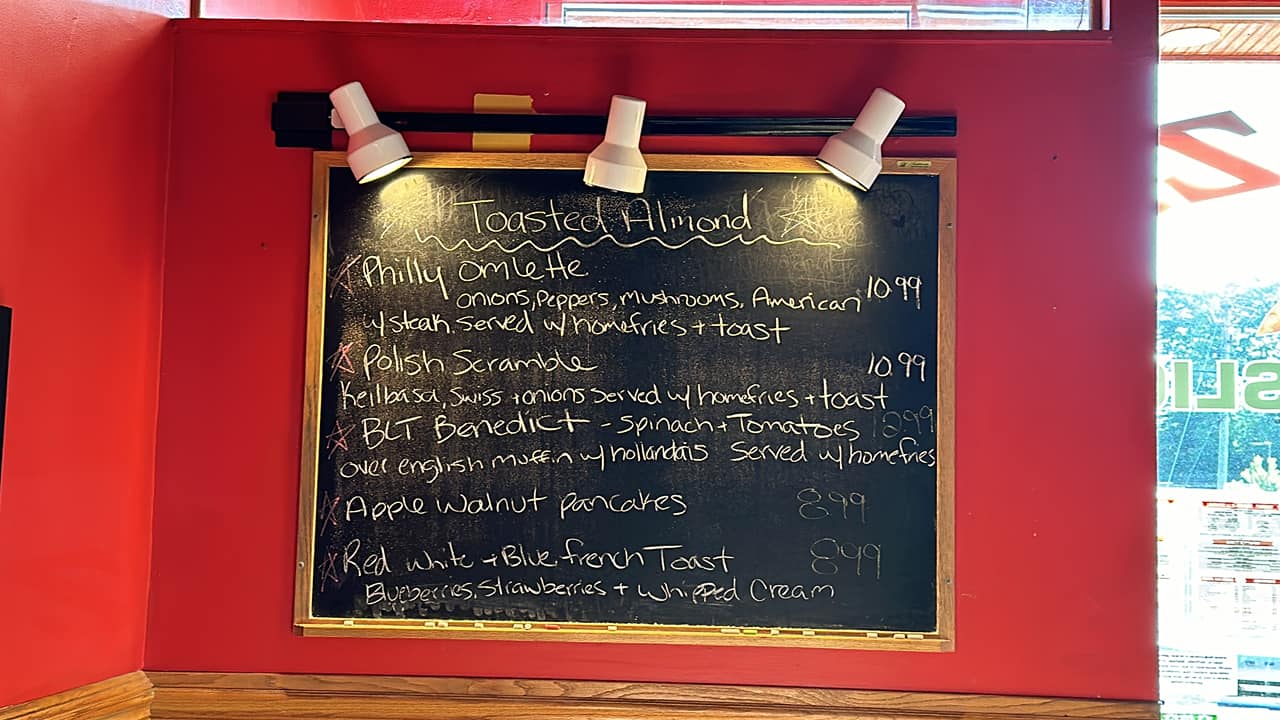 Toasted Almond
Philly omlette
onions, Peppers, mushrooms, American 10.99
w/ steak. Served w/ homefries + toast
Polish Scramble 10.99
Keilbasa, Swiss + onions Served w/ homefries + toast
BLT Benedict - Spinach + Tomatoes 12.99
over english muffin w/ hollandais Served w/ homefries
Apple Walnut pancakes 8.99
Red White + Blue french Toast 8.99
Blueberries, Strawberries + Whipped Cream